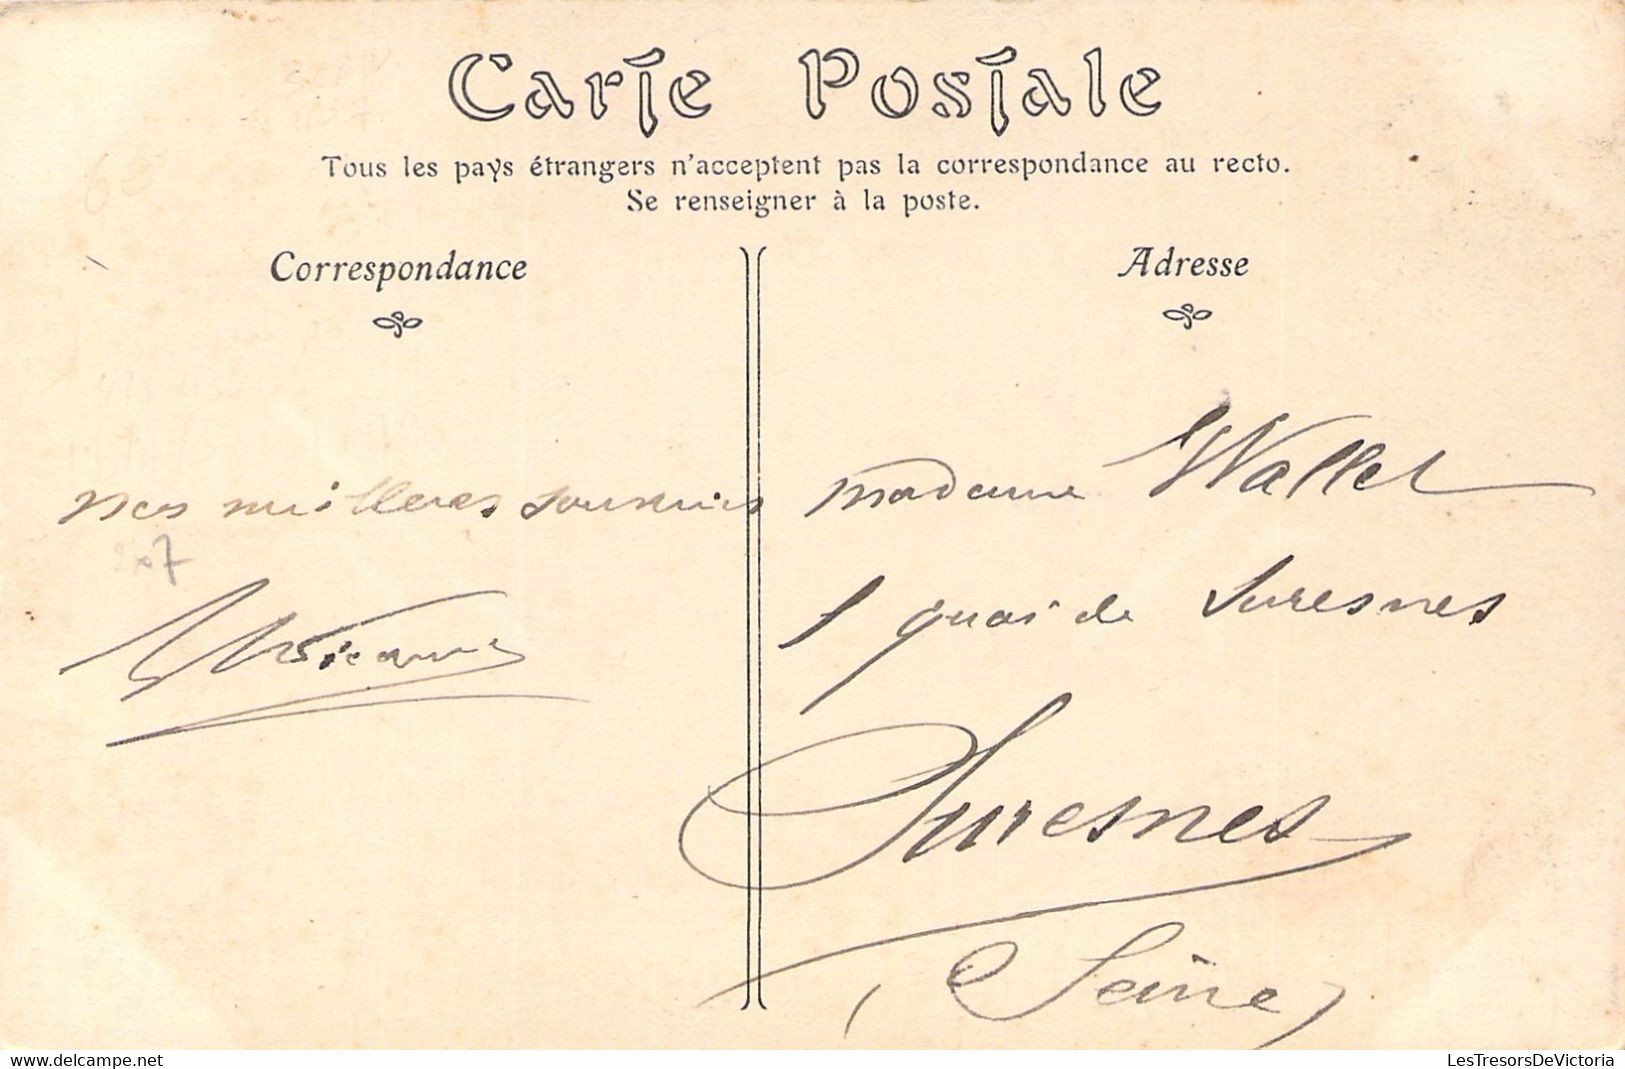 Carte Postale
Tous les pays étrangers n'acceptent pas la correspondance au recto.
Se renseigner à la poste.
Correspondance
Adresse
mes meilleures souvenirs
207
madame Wallet
1 quai de Suresnes
Suresnes
(Seine)
www.delcampe.net
LesTresorsDeVictoria